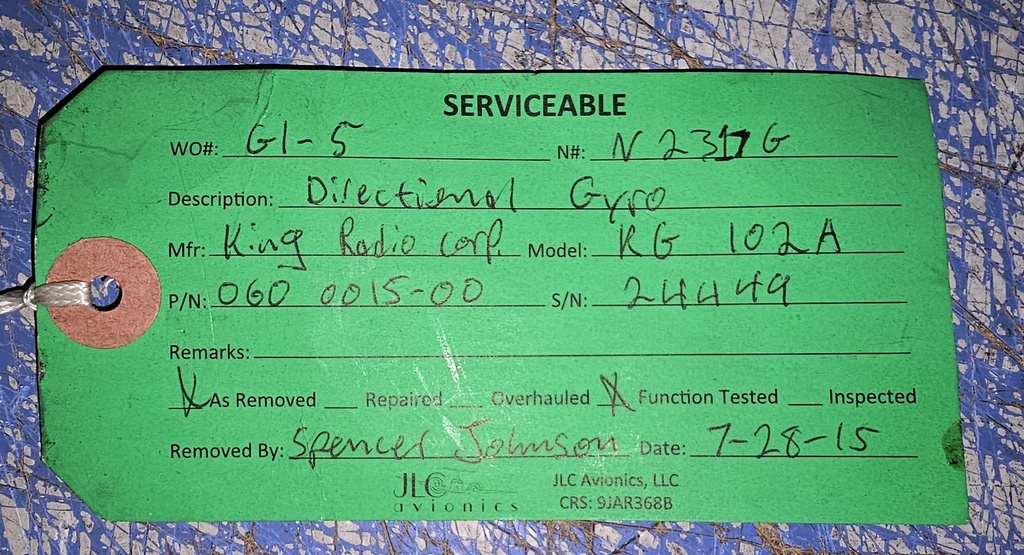 SERVICEABLE
WO#: GI-5 N#: N2317G
Description: Directional Gyro
Mfr: King Radio Corp. Model: KG 102A
P/N: 060 0015-00 S/N: 24449
Remarks:
X As Removed Repaired Overhauled X Function Tested Inspected
Removed By: Spencer Johnson Date: 7-28-15
JLC avionics
JLC Avionics, LLC
CRS: 9JAR368B